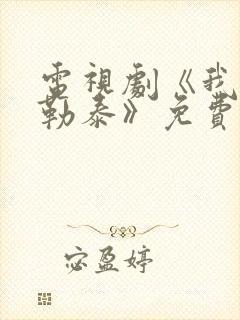 電視劇《我
勒泰》免費
宓盈婷